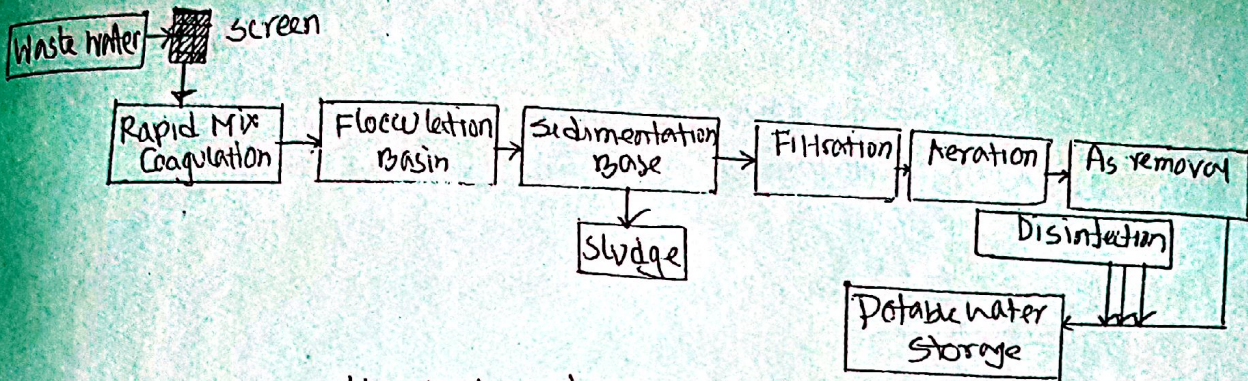 Waste water
screen
Rapid Mix
Coagulation
Flocculation
Basin
Sedimentation
Base
Filtration
Aeration
As removal
Sludge
Disinfection
Potable water
Storage